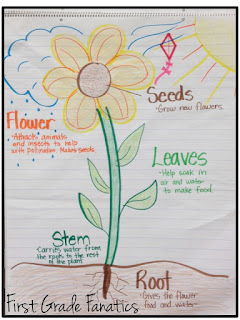 Seeds
- Grow new flowers.
Flower
- Attracts animals
and insects to help
with pollination. Makes seeds.
Leaves
- Help soak in
air and water
to make food.
Stem
- Carries water from
the roots to the rest
of the plant.
Root
- Gives the flower
food and water.
First Grade Fanatics